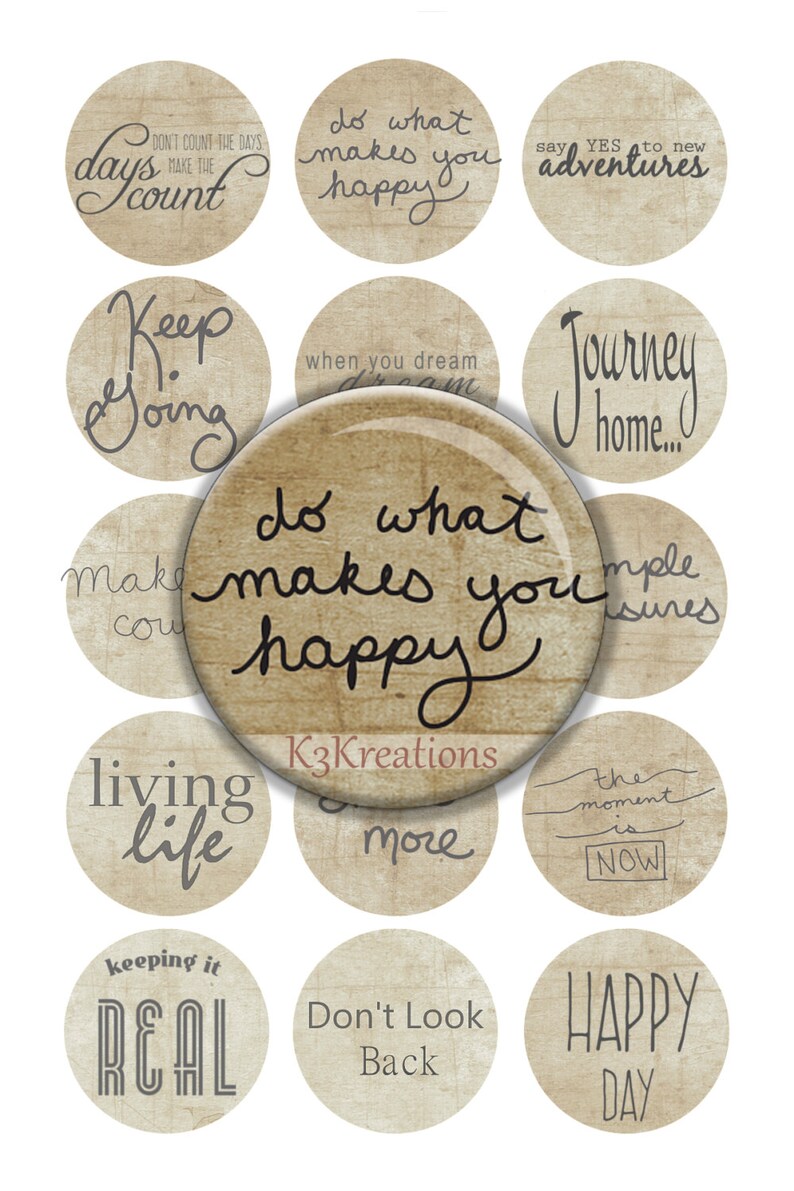 DON'T COUNT THE DAYS
days MAKE THE
count
do what
makes you
happy
say YES to new
adventures
Keep
Going
when you dream
dream
Journey
home...
make
do what
makes you
happy
K3Kreations
living
life
more
the
moment
is
NOW
keeping it
REAL
Don't Look
Back
HAPPY
DAY